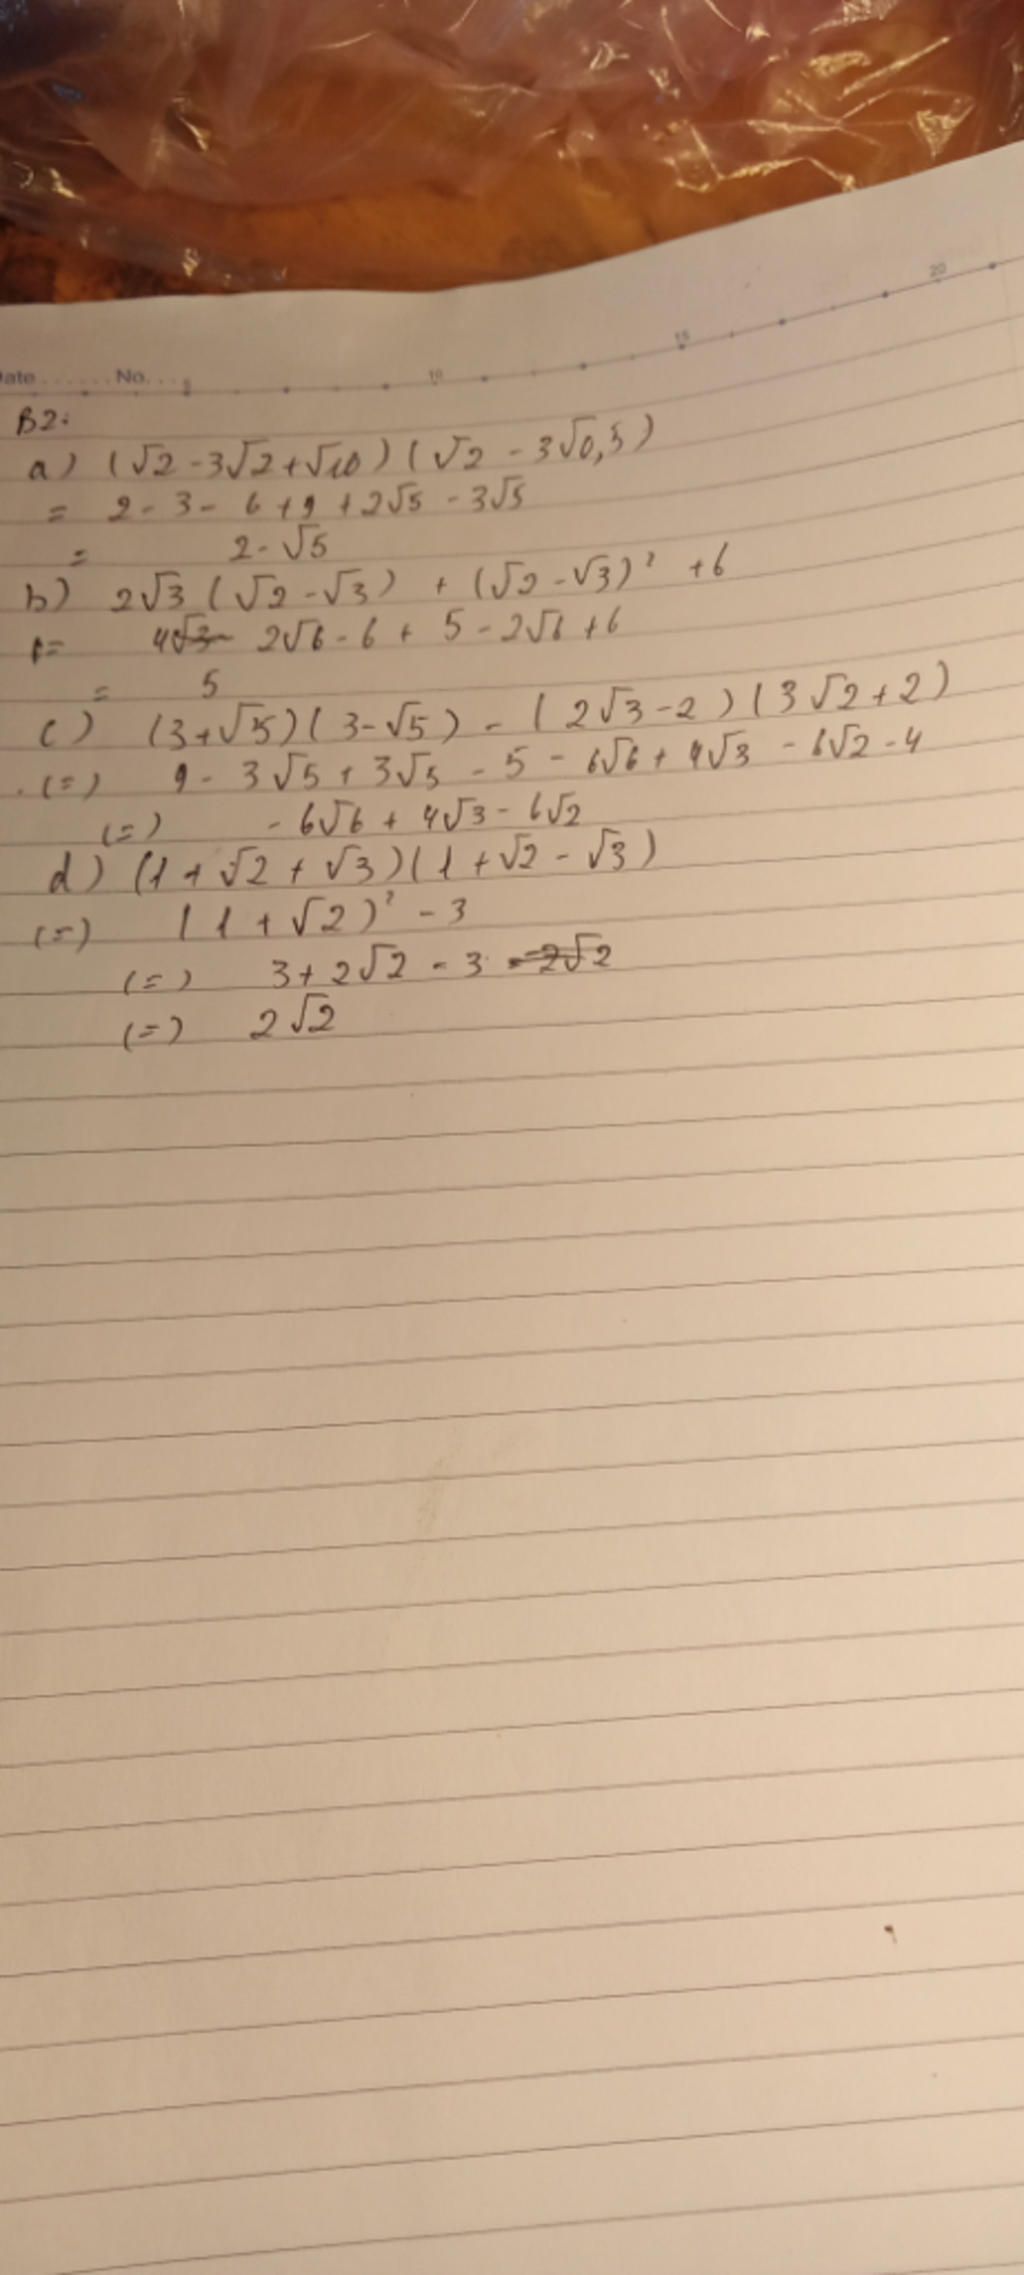 Date ...... No. ...
10
15
20
B2:
a) (√2 - 3√2 + √10) (√2 - 3√0,5)
= 2 - 3 - 6 + 9 + 2√5 - 3√5
= 2 - √5
b) 2√3 (√2 - √3) + (√2 - √3)² + 6
= 2√6 - 6 + 5 - 2√6 + 6
= 5
c) (3 + √5) (3 - √5) - (2√3 - 2) (3√2 + 2)
(=) 9 - 3√5 + 3√5 - 5 - 6√6 + 4√3 - 6√2 - 4
(=) - 6√6 + 4√3 - 6√2
d) (1 + √2 + √3) (1 + √2 - √3)
(=) (1 + √2)² - 3
(=) 3 + 2√2 - 3
(=) 2√2